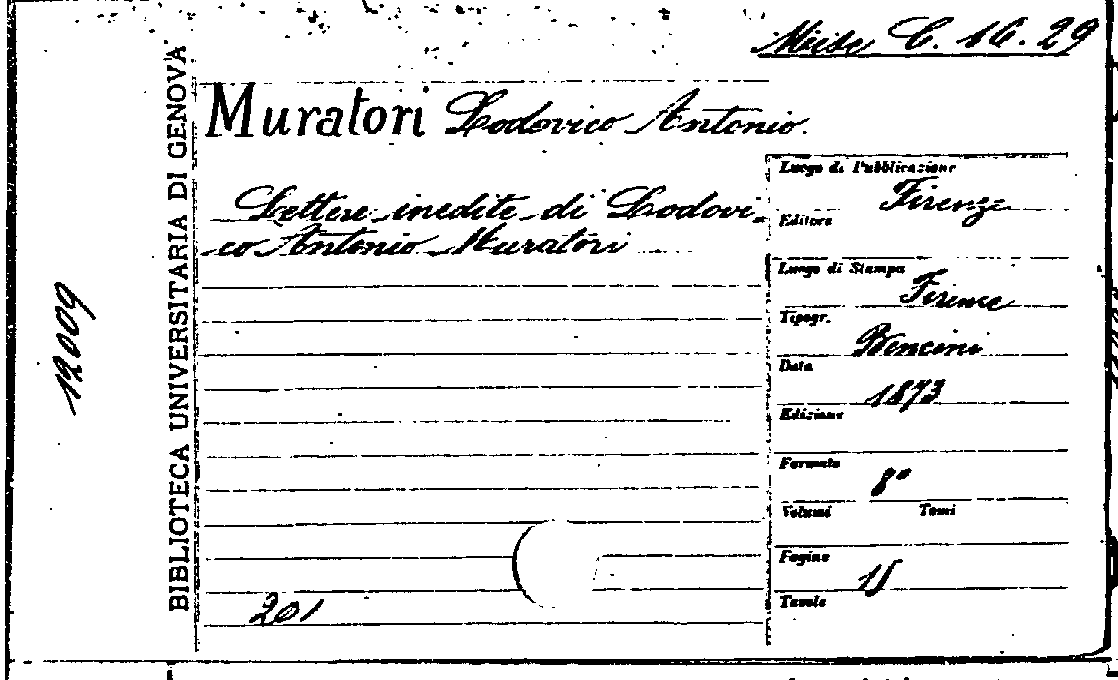 Misc. C. 16. 29
Muratori Lodovico Antonio.
Lettere inedite di Lodovi-
co Antonio Muratori
201
BIBLIOTECA UNIVERSITARIA DI GENOVA
12009
Luogo di Pubblicazione
Firenze
Editore
Luogo di Stampa
Firenze
Tipogr.
Bencini
Data
1873
Edizione
Formato
8°
Volumi Tomi
Pagine
15
Tavole